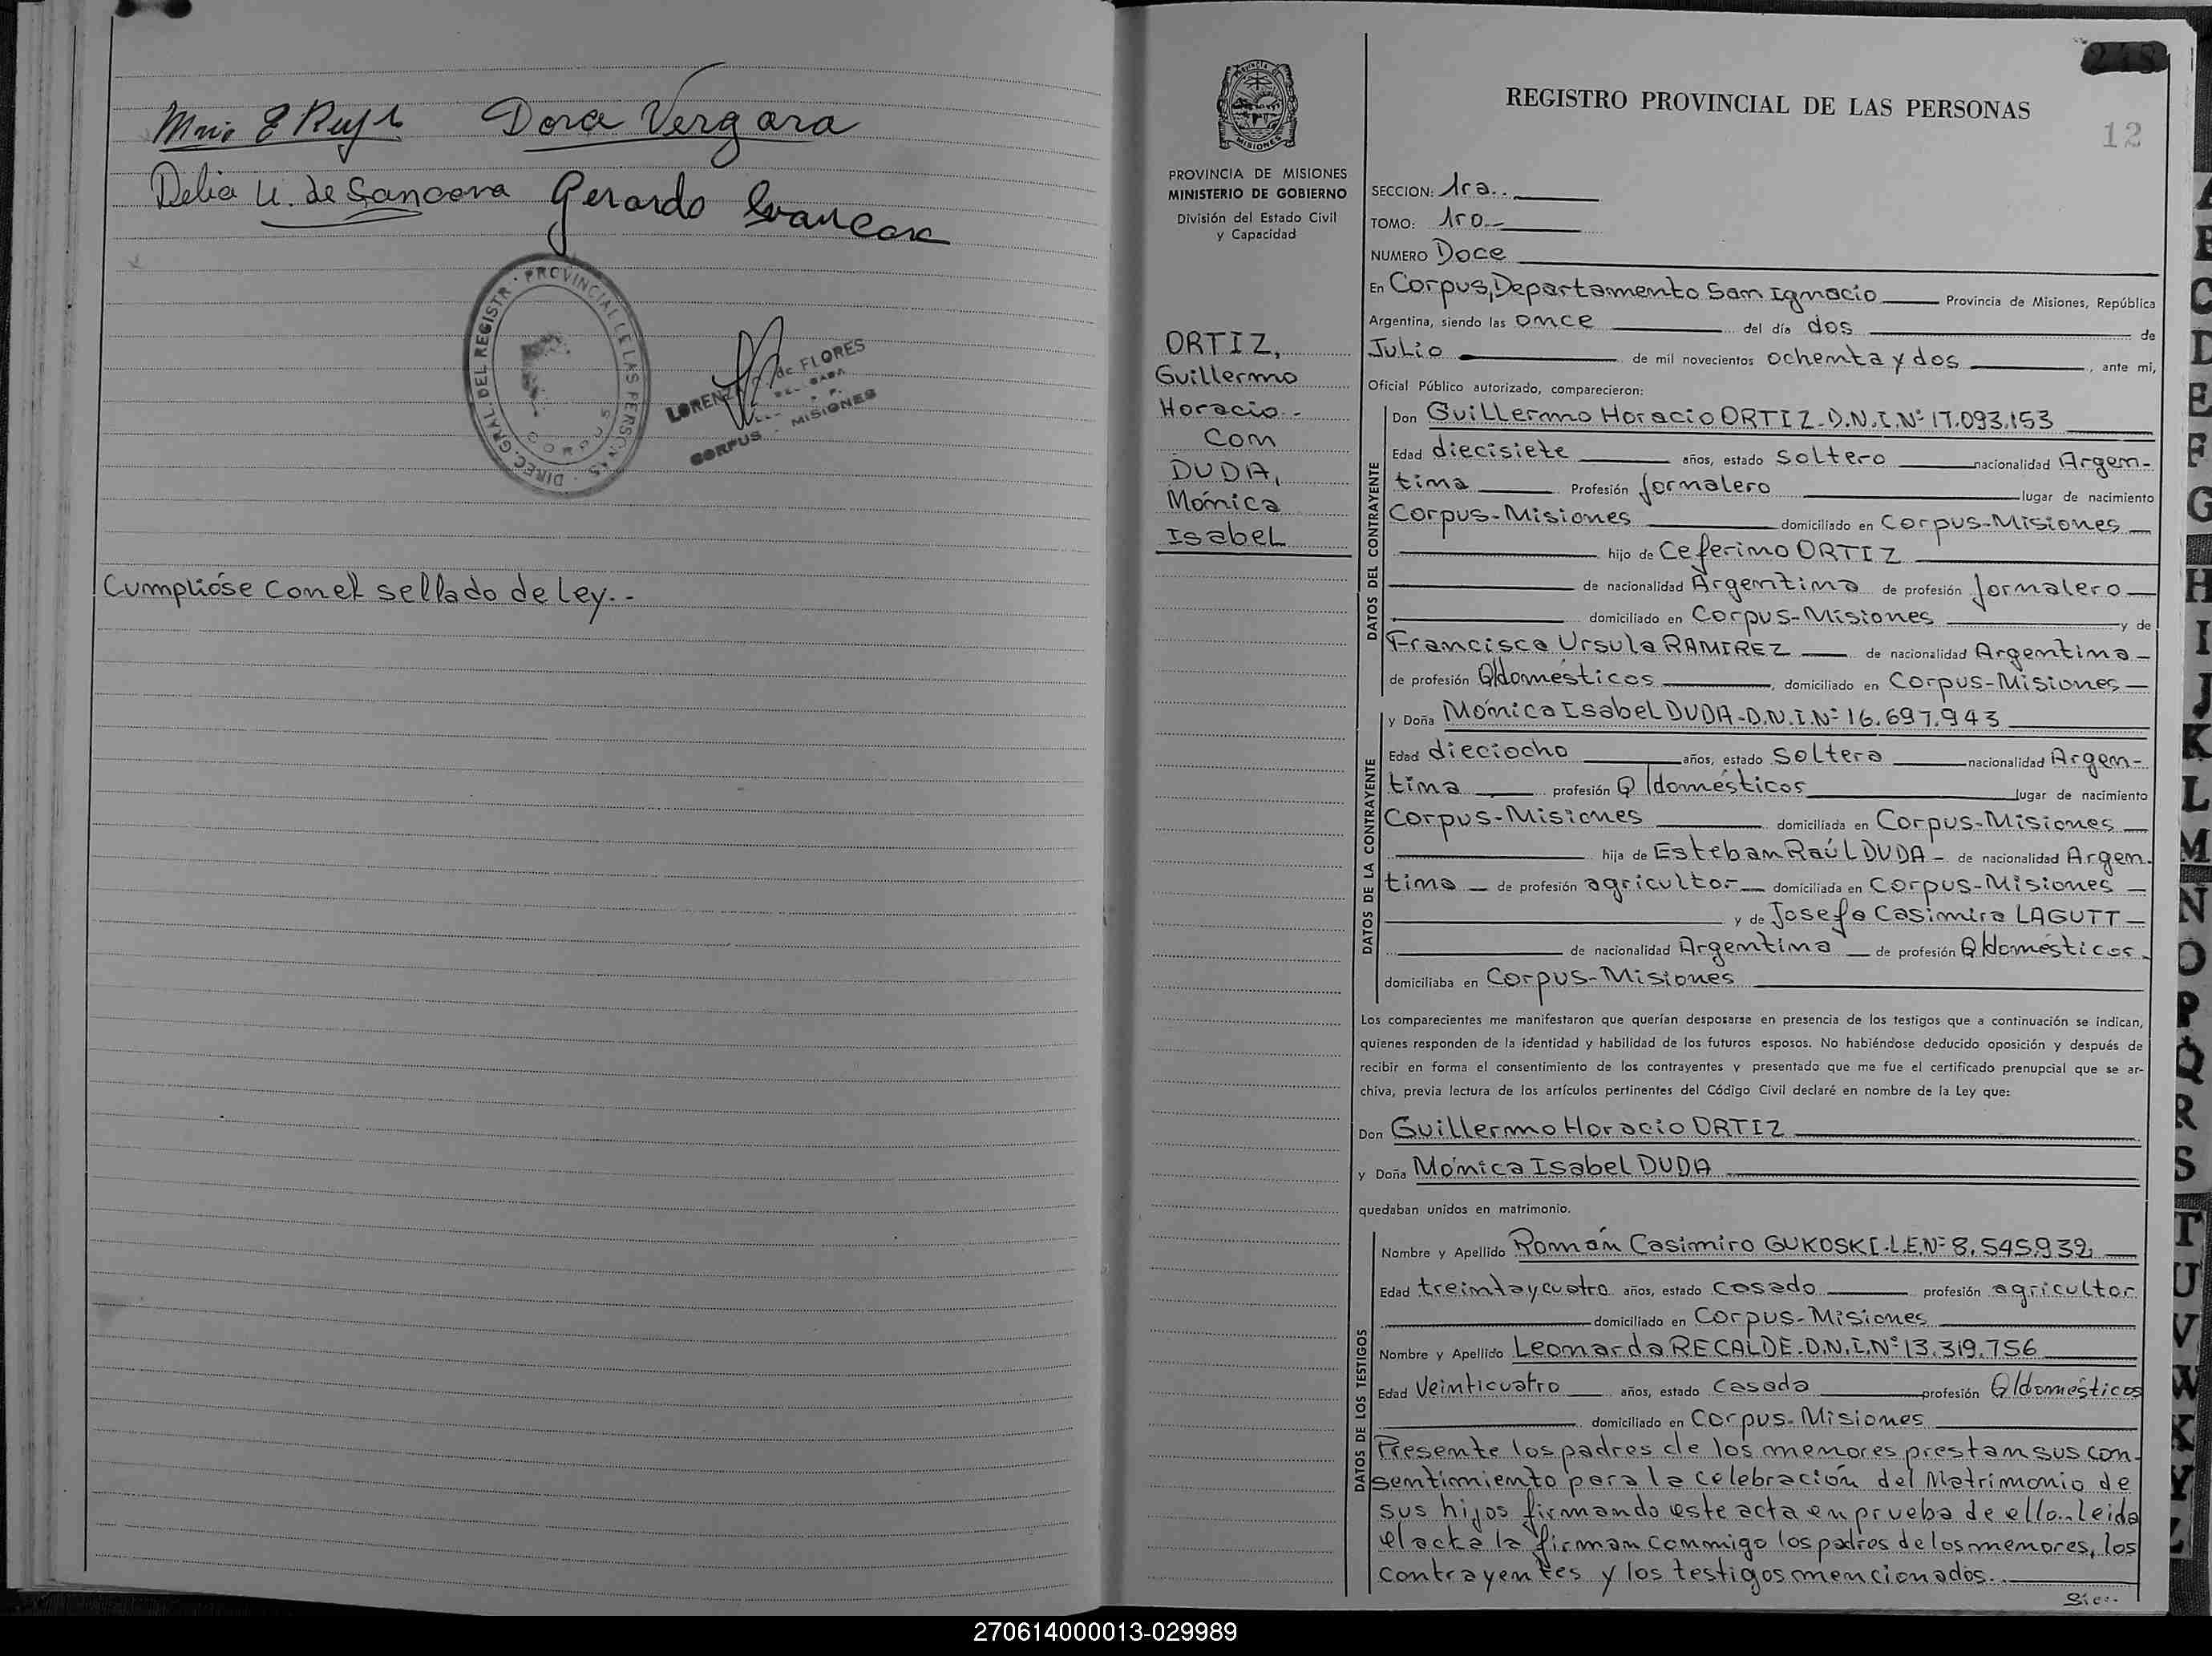 Dora Vergara
Delia U. de Sancora Gerardo
DIREC. GRAL. DEL REGISTR. PROVINCIAL DE LAS PERSONAS
CORPUS
de FLORES
CORPUS - MISIONES
Cumplióse con el sellado de Ley.-
218
REGISTRO PROVINCIAL DE LAS PERSONAS
12
PROVINCIA DE MISIONES
MINISTERIO DE GOBIERNO
División del Estado Civil
y Capacidad
SECCION: 1ra..
TOMO: 1ro.-
NUMERO Doce
En Corpus, Departamento San Ignacio Provincia de Misiones, República
Argentina, siendo las once del día dos de
Julio de mil novecientos ochenta y dos, ante mi,
Oficial Público autorizado, comparecieron:
ORTIZ,
Guillermo
Horacio-
Con
DUDA,
Mónica
Isabel
DATOS DEL CONTRAYENTE
Don Guillermo Horacio ORTIZ-D.N.I.Nº 17.093.153
Edad diecisiete años, estado soltero nacionalidad Argen-
tina Profesión jornalero lugar de nacimiento
Corpus-Misiones domiciliado en Corpus-Misiones
hijo de Ceferino ORTIZ
de nacionalidad Argentina de profesión jornalero
domiciliado en Corpus-Misiones y de
Francisca Ursula RAMIREZ de nacionalidad Argentina
de profesión Q/domésticos, domiciliado en Corpus-Misiones
DATOS DE LA CONTRAYENTE
y Doña Mónica Isabel DUDA-D.N.I.Nº 16.697.943
Edad dieciocho años, estado soltera nacionalidad Argen-
tina profesión Q/domésticos lugar de nacimiento
Corpus-Misiones domiciliada en Corpus-Misiones
hija de Esteban Raúl DUDA de nacionalidad Argen-
tina de profesión agricultor domiciliada en Corpus-Misiones
y de Josefa Casimira LAGUTT
de nacionalidad Argentina de profesión Q/domésticos
domiciliaba en Corpus-Misiones
Los comparecientes me manifestaron que querían desposarse en presencia de los testigos que a continuación se indican,
quienes responden de la identidad y habilidad de los futuros esposos. No habiéndose deducido oposición y después de
recibir en forma el consentimiento de los contrayentes y presentado que me fue el certificado prenupcial que se ar-
chiva, previa lectura de los artículos pertinentes del Código Civil declaré en nombre de la Ley que:
Don Guillermo Horacio ORTIZ
y Doña Mónica Isabel DUDA
quedaban unidos en matrimonio.
DATOS DE LOS TESTIGOS
Nombre y Apellido Román Casimiro GUKOSKI-L.E.Nº 8.545.932
Edad treinta y cuatro años, estado casado profesión agricultor
domiciliado en Corpus-Misiones
Nombre y Apellido Leonarda RECALDE-D.N.I.Nº 13.319.756
Edad Veinticuatro años, estado Casada profesión Q/domésticos
domiciliado en Corpus-Misiones
Presente los padres de los menores prestan sus con-
sentimiento para la celebración del Matrimonio de
sus hijos firmando este acta en prueba de ello.-Leida
el acta la firman conmigo los padres de los menores, los
contrayentes y los testigos mencionados.-
A
B
C
D
E
F
G
H
I
J
K
L
M
N
O
P
Q
R
S
T
U
V
W
X
Y
Z
270614000013-029989